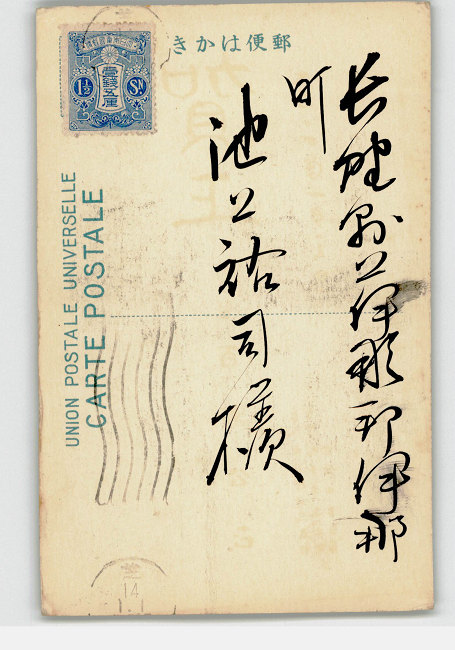 郵便はかき
長野縣上伊那郡伊那
町
池上祐司樣
UNION POSTALE UNIVERSELLE
CARTE POSTALE
壹錢五厘
1½ Sn.
14
1.1